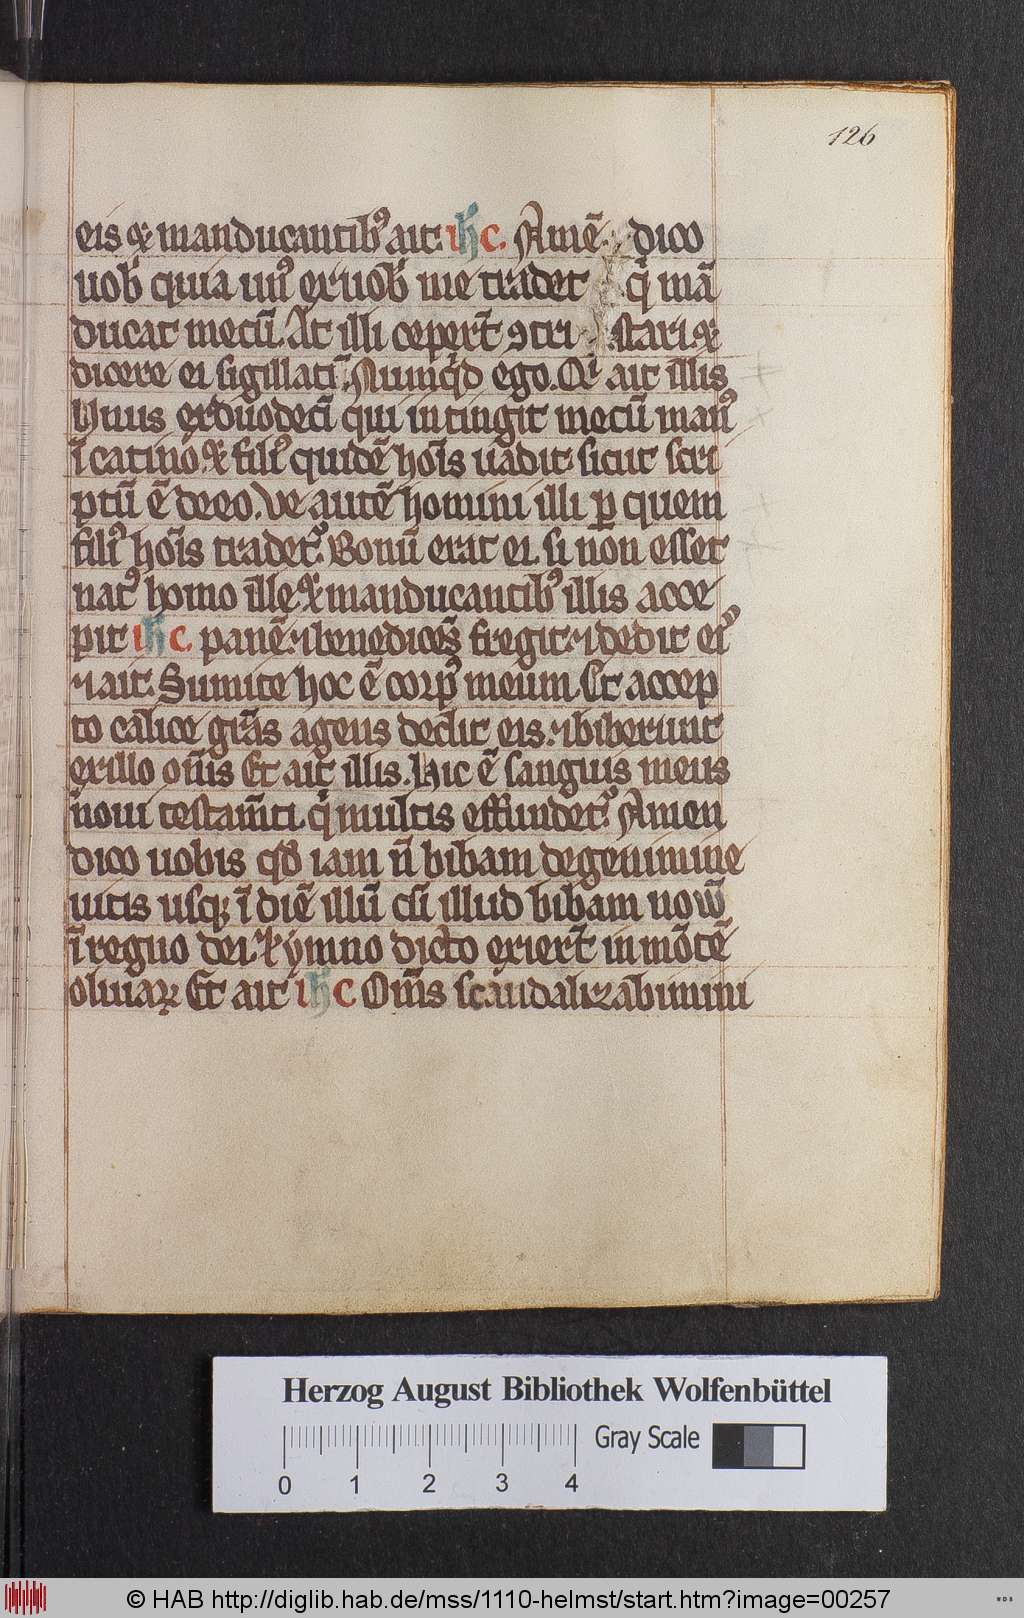 126
eis ⁊ manducantib᷒ ait ihc. Amē dico
uob̄ quia un᷒ ex uob̄ me tradet q̇ mā
ducat mecū. At illi ceper̄t ꝯtristari ⁊
dicere ei sigillatī. Nunq̇d ego. Qͥ ait illis
Unus ex duodecī qui intingit mecū man᷒
ī catino ⁊ fili᷒ quidē hoīs uadit sicut scri
ptū ē de eo. Ve autē homini illi ꝑ quem
fili᷒ hoīs tradet᷑ Bonū erat ei. si non esset
nat᷒ homo ille ⁊ manducantib᷒ illis acce
pit ihc. panē. ⁊ benedicēs fregit. ⁊ dedit ei᷒
⁊ ait. Sumite hoc ē corp᷒ meum. Et accep
to calice grās agens dedit eis. ⁊ biberunt
ex illo om̄s Et ait illis. Hic ē sanguis meus
noui testam̄ti. q̇ multis effundet᷑ Amen
dico uobis qd̄ iam n̄ bibam de genimine
uitis usqꝫ ī diē illū cū illud bibam nouū
ī regno dei. ⁊ ymno dicto exier̄t in mōtē
oliuaꝝ Et ait ihc Om̄s scandalizabimini
Herzog August Bibliothek Wolfenbüttel
Gray Scale
0 1 2 3 4
© HAB http://diglib.hab.de/mss/1110-helmst/start.htm?image=00257